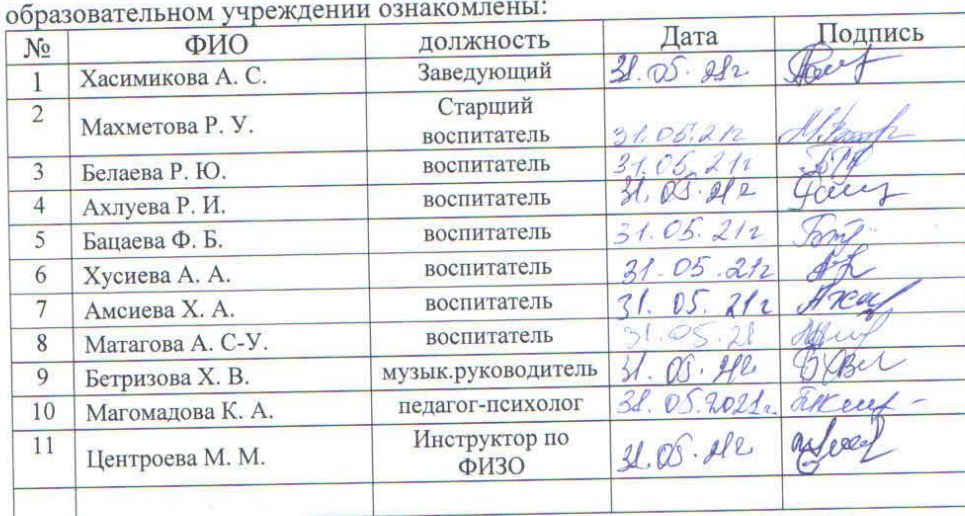 образовательном учреждении ознакомлены:
№ ФИО должность Дата Подпись
1 Хасимикова А. С. Заведующий 31.05.21г
2 Махметова Р. У. Старший воспитатель 31.05.21г
3 Белаева Р. Ю. воспитатель 31.05.21г
4 Ахлуева Р. И. воспитатель 31.05.21г
5 Бацаева Ф. Б. воспитатель 31.05.21г
6 Хусиева А. А. воспитатель 31.05.21г
7 Амсиева Х. А. воспитатель 31.05.21г
8 Матагова А. С-У. воспитатель 31.05.21
9 Бетризова Х. В. музык.руководитель 31.05.21г
10 Магомадова К. А. педагог-психолог 31.05.2021г.
11 Центроева М. М. Инструктор по ФИЗО 31.05.21г